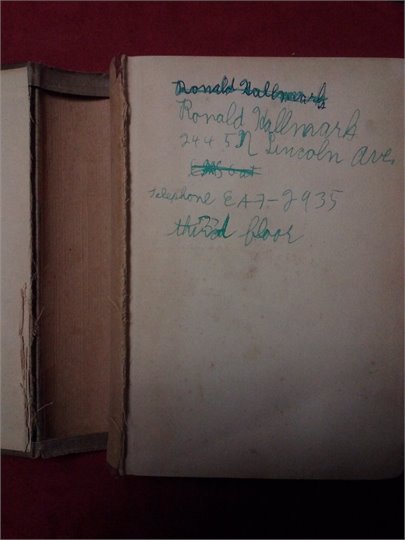 Ronald Hallmark
Ronald Hallmark
2445 N Lincoln Ave,
Telephone EA7-2935
third floor